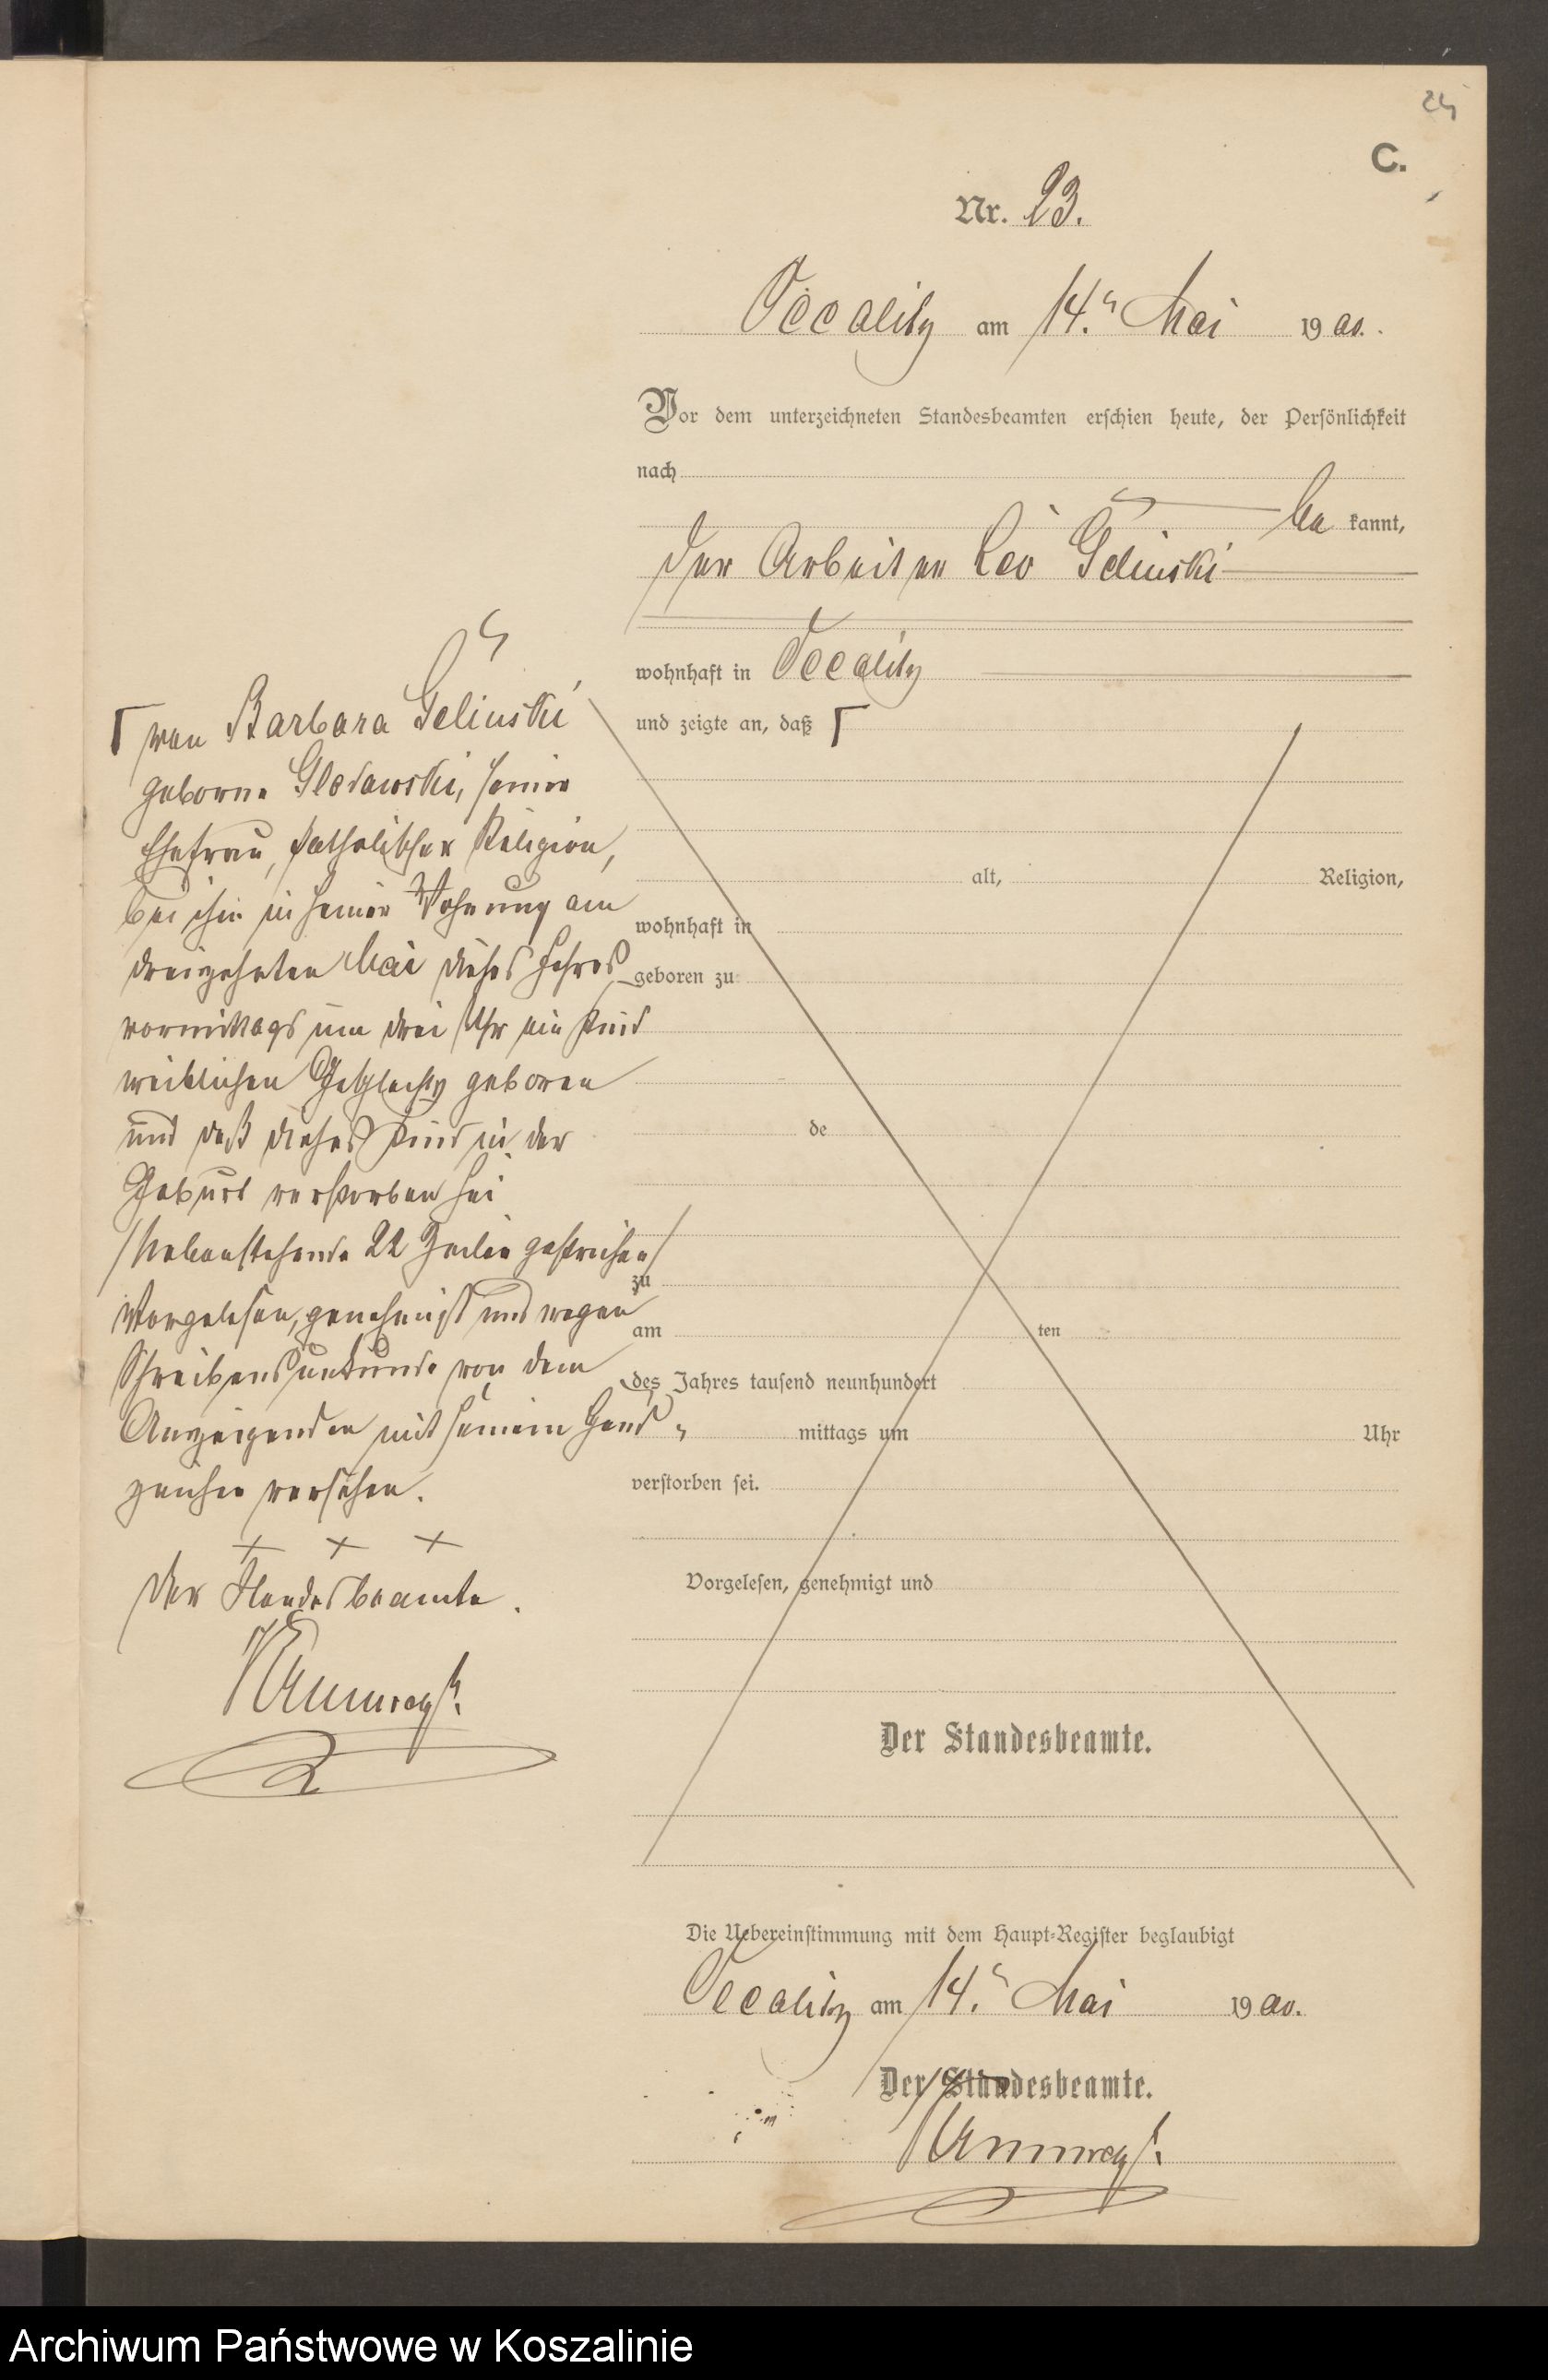 24
C.
Nr. 23.
Occalitz am 14. Mai 1900.
Vor dem unterzeichneten Standesbeamten erschien heute, der Persönlichkeit
nach
bekannt,
der Arbeiter Leo Gelinski
wohnhaft in Occalitz
und zeigte an, daß Γ
alt, Religion,
wohnhaft in
geboren zu
de
zu
am ten
des Jahres tausend neunhundert
mittags um Uhr
verstorben sei.
Vorgelesen, genehmigt und
Der Standesbeamte.
Γ von Barbara Gelinski
geborne, seiner
Ehefrau, katholischer Religion,
bei ihm in seiner Wohnung am
dreizehnten Mai dieses Jahres
vormittags um drei Uhr ein Kind
weiblichen Geschlechts geboren
und daß dieses Kind in der
Geburt verstorben sei
/Nebenstehende 22 Zeilen gestrichen/
Vorgelesen, genehmigt und wegen
Schreibensunkunde von dem
Anzeigenden mit seinem Hand-
zeichen versehen.
+ + +
Der Standesbeamte.
Die Uebereinstimmung mit dem Haupt-Register beglaubigt
Occalitz am 14. Mai 1900.
Der Standesbeamte.
Archiwum Państwowe w Koszalinie